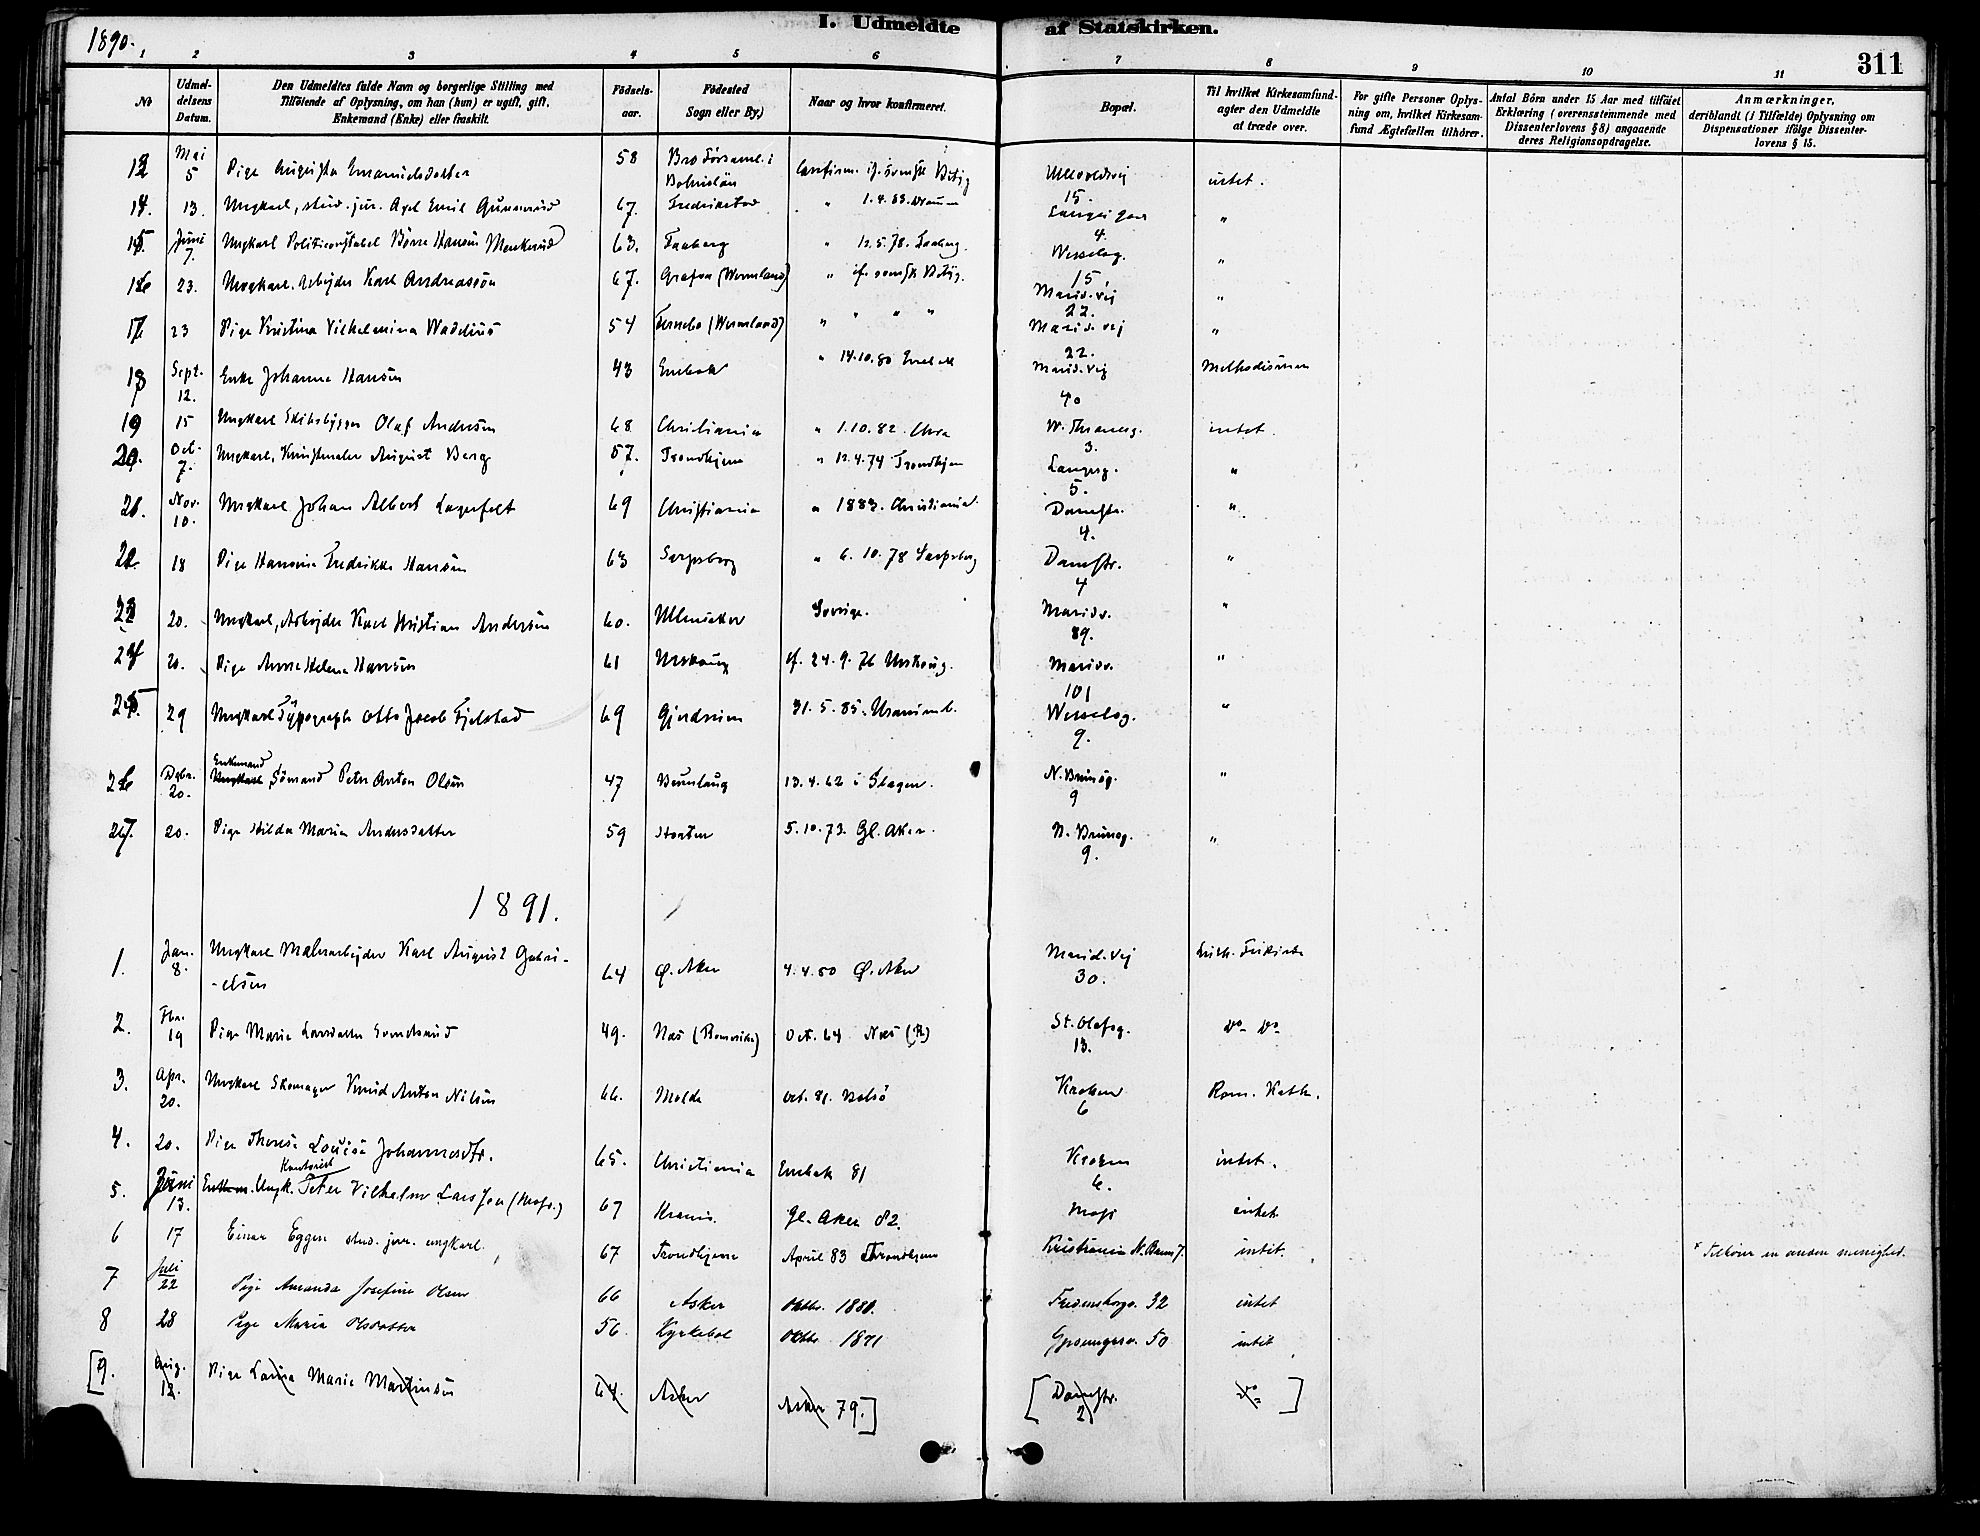 I. Udmeldte af Statskirken.
1890.
311
1 2 3 4 5 6 7 8 9 10 11
No
Udmeldelsens Datum.
Den Udmeldtes fulde Navn og borgerlige Stilling med Tilføiende af Oplysning, om han (hun) er ugift, gift, Enkemand (Enke) eller fraskilt.
Fødselsaar.
Fødested Sogn eller By.)
Naar og hvor konfirmeret.
Bopæl.
Til hvilket Kirkesamfund agter den Udmeldte at træde over.
For gifte Personer Oplysning om, hvilket Kirkesamfund Ægtefællen tilhører.
Antal Børn under 15 Aar med tilføiet Erklæring (overensstemmende med Dissenterlovens § 8) angaaende deres Religionsopdragelse.
Anmærkninger, deriblandt (i Tilfælde) Oplysning om Dispensationer ifølge Dissenterlovens § 15.
Mai 5 Pige Augusta 58 Bro Forsaml. i if. svensk Ullevoldsvej 15. intet.
14. 13. Ungkarl, stud. jur. Axel Emil 67. Fredrikstad " 1.4.83. 4. "
15. Juni 7. Ungkarl Politiconstabel Hansen 63. Faaberg " 12.5.78. Faaberg. Wesselsg. 15 "
16 23. Ungkarl. Arbejder Karl Andreassøn 67. (Wermland) " if. svensk Marid. vej 22. "
17 23 Pige Kristina Vilhelmina Wadelius 54 (Wermland) " " " " Marid. vej 22. "
18 Sept. 12. Enke Johanne Hansen 43 Enebak " 14.10.80 Enebak Marid. vej 40 Methodismen
19 15 Ungkarl Skibsbygger Olaf Andersen 68 Christiania " 1.10.82. Chra W. Thranesg. 3. intet.
20. Oct. 7. Ungkarl, Kunstmaler August Berg 57. Trondhjem " 12.4.74 Trondhjem Langesg. 5. "
21. Nov. 10. Ungkarl Johan Albert Lagerfelt 69 Christiania " 1883. Christiania Damstr. 4. "
22 18 Pige Hansine Fredrikke Hansen 63 Sarpsborg " 6.10.78 Sarpsborg Damstr. 4 "
23 20. Ungkarl, Arbejder Karl Kristian Andersen 60. Ullensaker Sverige. Maridv. 89. "
24 20. Pige Anne Helene Hansen 61 Urskoug cf. 24.9.76 Urskoug. Maridv. 101 "
25. 29 Ungkarl Typograph Otto Jacob Fjelstad 69 Gjerdrum 31.5.85. Uranienb. Wesselsg. 9. "
26 Dcbr. 20. Enkemand Sømand Peter Anton Olsen 47 Brunlaug 13.4.62 i Slagen. N. Brunsg. 9 "
27. 20. Pige Hilda Maria Andersdatter 59 Horten 5.10.73. Gl. Aker. N. Brunsg. 9. "
1891.
1. Jan. 8. Ungkarl Malerarbejder Karl August Gabri-
-elsen 64 Ø. Aker 4.4.80 Ø. Aker Marid. vej 30. Luth. Frikirke
2. Fbr. 19 Pige Marie Larsdatter 49. Næs (Romerike) Oct. 64 Næs (R) St. Olafsg. 13. do do
3. Apr. 20. Ungkarl Skomager Knud Anton Nilsen 66. Molde Oct. 81. Bolsø Kroken 6 Rom. Kath.
4. 20. Pige Therese Louise Johannesdtr. 65. Christiania Enebak 81 Kroken 6. intet.
5. Juni 13. Ungk. Kontorist Peter Vilhelm Larsson 67 Gl. Aker 82. Moss intet
6 17 Einar Eggen stud. jur. ungkarl. 67 Trondhjem April 83 Throndhjem Kristiania N. Bruns 7. intet. * Tilhører en anden menighed.
7 Juli 22 Pige Amanda Josefine Olsen 66 Asker Oktbr. 1880. Fredensborgv. 32 intet
8 28 Pige Maria Olsdatter 56. Kyrkebøl Oktbr. 1871 50 intet
[9. Aug. 12. Pige Marie Martinsen 64. Asker Asker 79.] [Damstr. 2 do ]